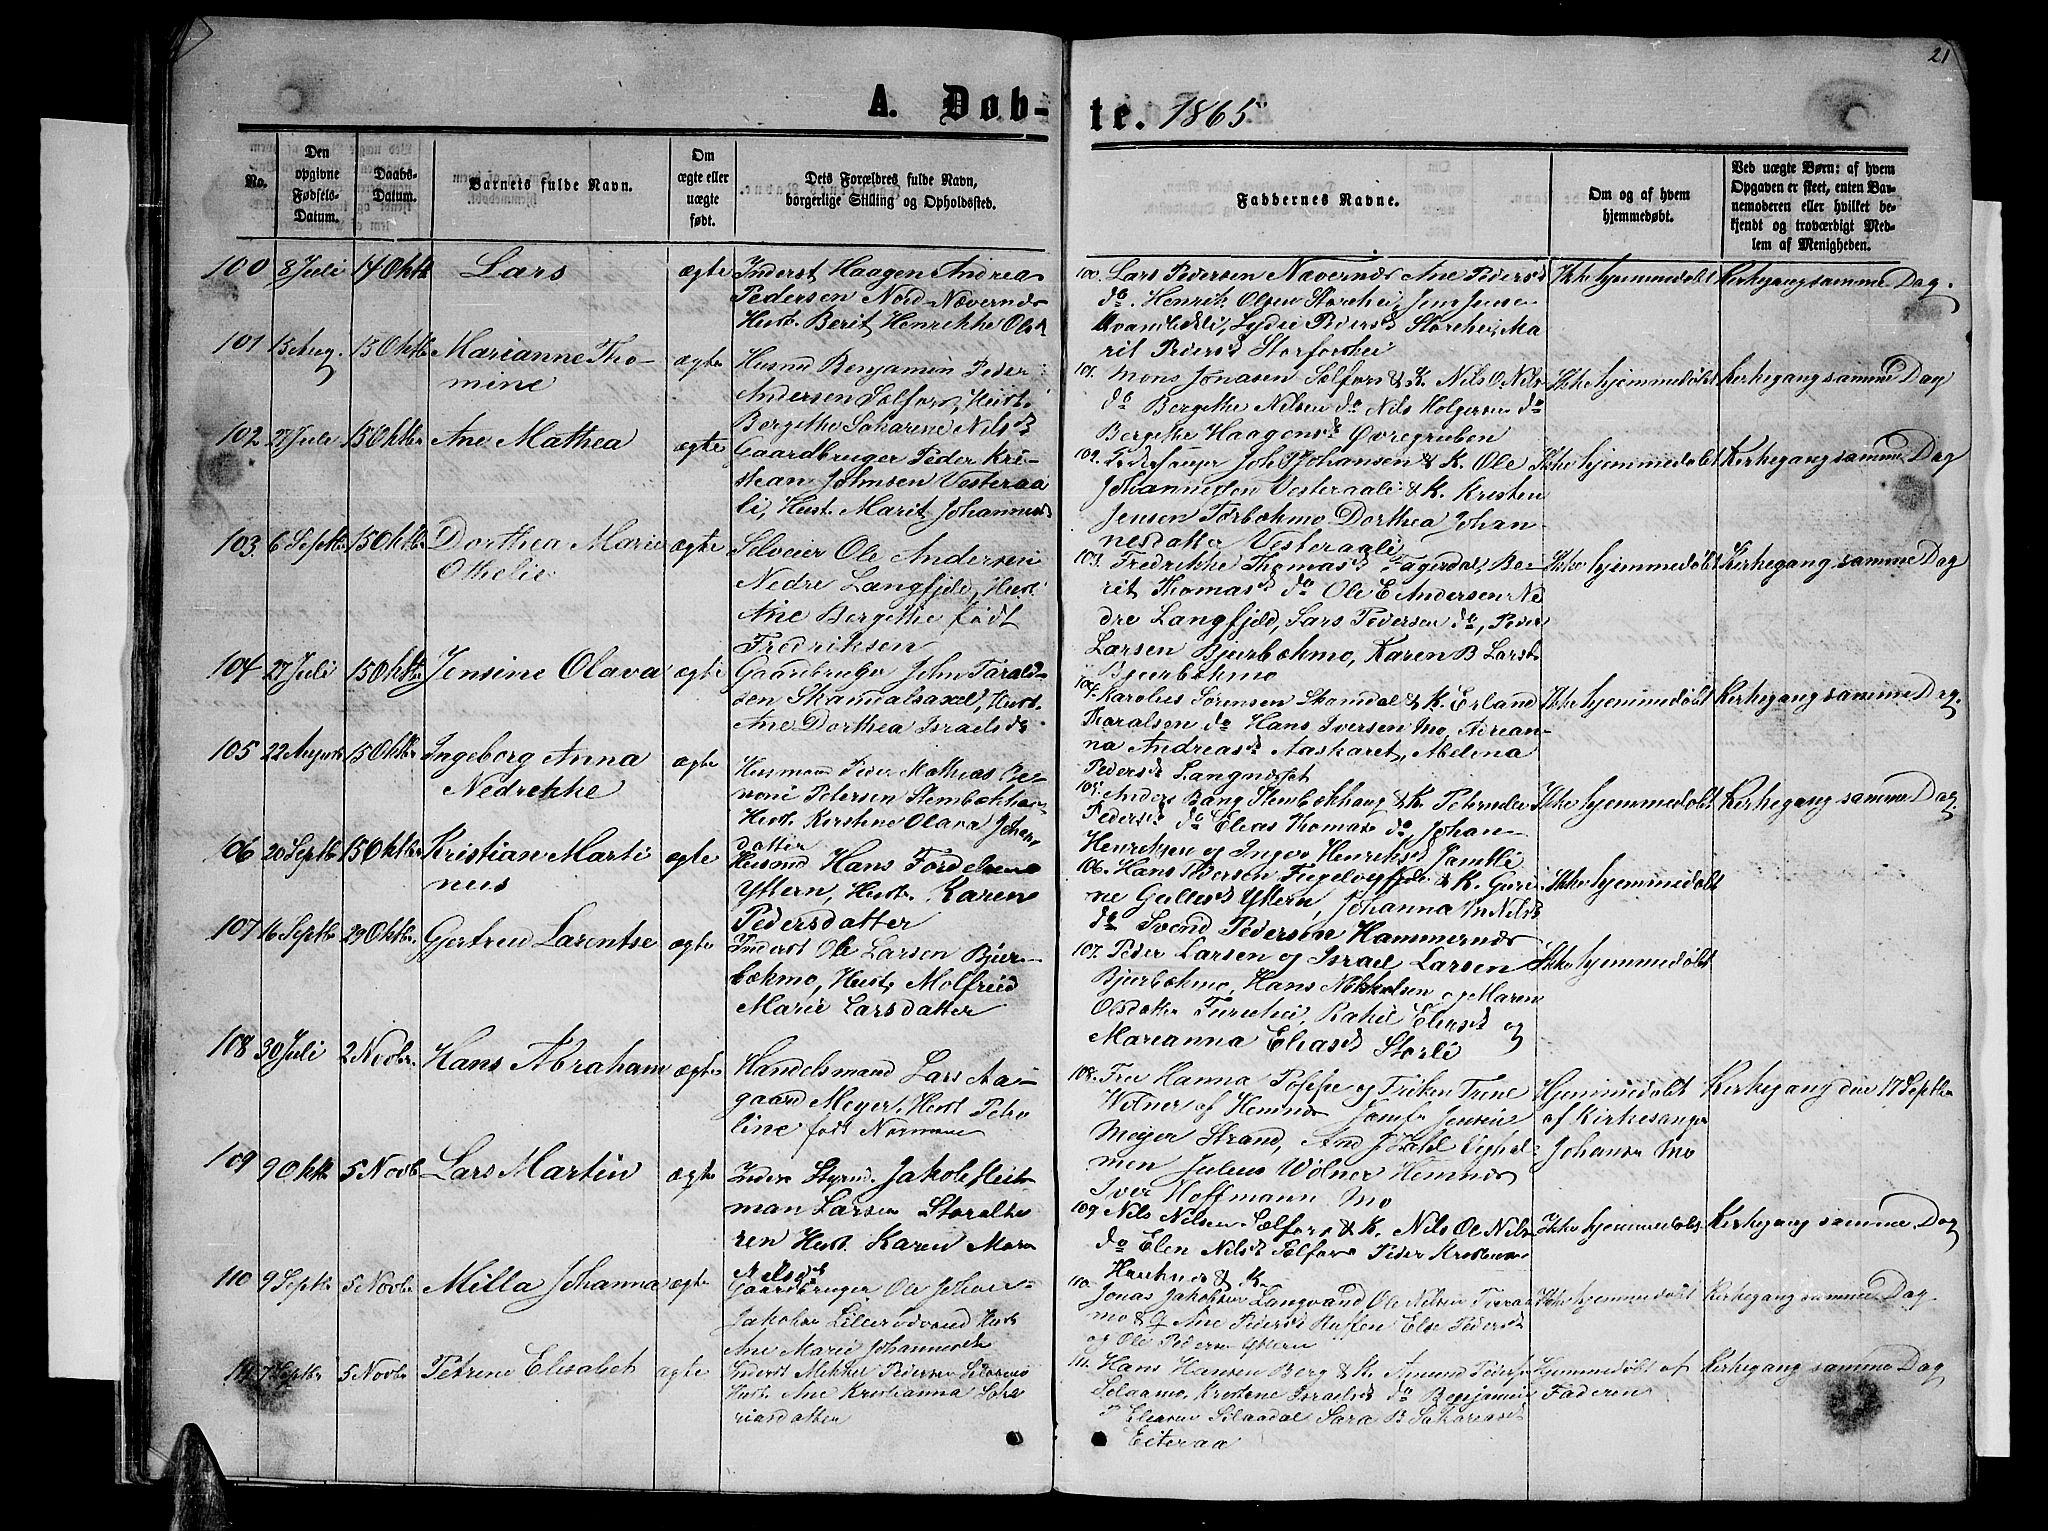 21
A. Døb-te. 1865
No.
Den opgivne Fødsels-Datum.
Daabs-Datum.
Barnets fulde Navn.
Om ægte eller uægte født.
Dets Forældres fulde Navn, borgerlige Stilling og Opholdsted.
Faddernes Navne.
Om og af hvem hjemmedøbt.
Ved uægte Børn: af hvem Opgaven er skeet, enten Barnemoderen eller hvilket bekjendt og troværdigt Medlem af Menigheden.
100 8 Juli 14 Oktb Lars ægte
Inderst Haagen Andrea
Pedersen Nord Nævernæs
Hust. Berit Henrikke Olsd
100. Lars Pedersen Nævernæs Ane Pedersd
do. Henrik Olsen Storehei, Jens Jense
Lydie Pedersd Storehei, Ma
rit Pedersd Storforshei
Ikke hjemmedøbt
Kirkegang samme Dag.
101 13 Aug. 15 Oktb Marianne Tho-
mine
ægte
Husmd Benjamin Peder
Andersen Selfors, Hust.
Bergithe Sakarine Nilsd
101. Mons Jonasen Selfors & K. Nils O Nils
do Bergithe Nilsen do Nils Holgersen do
Bergithe Haagensd Øvregruben
Ikke hjemmedøbt
Kirkegang samme Dag
102 27 Juli 15 Oktbr Ane Mathea ægte
Gaardbruger Peder Kri-
stian Johnsen Vesteraa
li, Hust. Marit Johannesd
102. Johansen & K. Ole
Johannessen Vesteraali & K. Kristen
Jensen Torbækmo Dorthea Johan-
nesdatter Vesteraali
Ikke hjemmedøbt
Kirkegang samme Dag
103 6 Septb 15 Oktbr Dorthea Marie
Othelie
ægte
Selveier Ole Andersen
Nedre Langfjeld, Hust
Ane Bergithe født
Fredriksen
103. Fredrikke Thomasd Fagerdal, Be-
rit Thomasd do Ole E Andersen Ne
dre Langfjeld, Lars Pedersen do, Peder
Larsen Bjerbækmo, Karen B Larsd
Bjerbækmo
Ikke hjemmedøbt
Kirkegang samme Dag
104 27 Juli 15 Oktbr Jensine Olava ægte
Gaardbruger John Tarald-
sen Skamdalsaxel, Hust.
Ane Dorthea Israelsd
104. Karolius Sørensen Skamdal & K. Erland
Taralsen do Hans Iversen Mo, Adrian-
na Andreasd Aaskaret, Abelina
Pedersd Langneset
Ikke hjemmedøbt
Kirkegang samme Dag.
105 22 August 15 Oktbr Ingeborg Anna
Nedrekke
ægte
Husmand Peder Mathias Be-
roni Petersen Stenbækhau
Hust. Kirstine Olava Johan
datter
105. Anders Bang Stenbækhaug & K. Petrndee
Pedersd do Elias Thomas do, Johan-
Henriksen og Inger Henriksd Jamtli
Ikke hjemmedøbt
Kirkegang samme Dag.
06 20 Septb 15 Oktbr Kristian Marti
nus
ægte
Husmd Hans Fordelsen
Yttern, Hust. Karen
Pedersdatter
06. Hans Pedersen & K. Guri
ne Yttern, Johanna M Nilsd
do Svend Pedersen Hammernæs
Ikke hjemmedøbt
107 16 Septb 29 Oktbr. Gjertrud Larentse ægte
Inderst Ole Larsen Bjer-
bækmo, Hust. Molfrid
Marie Larsdatter
107. Peder Larsen og Israel Larsen
Bjerbækmo, Hans og Maren
Olsdatter Rakel Eliesd og
Marianna Eliasd Storli
Ikke hjemmedøbt
108 30 Juli 2 Novbr. Hans Abraham ægte
Handelsmand Lars Aa-
gaard Meyer, Hust Petro
line født Normann
108. Fru Hanna Poppe og Frøken Trine
Wolner af Hemnæs Jomfr Jensine
Meyer Strand, And J Dahl Vighol-
men Julius Wolner Hemnæs
Iver Hoffmann Mo
Hjemmedøbt
af Kirkesanger
Johansen Mo
Kirkegang den 17 Septbr
109 9 Oktb 5 Novb Lars Martin ægte
Jakob Heit
man Larsen Storalte
ren Hust. Karen Mar
Nilsd
109 Nils Nilsen Selfors & K. Nils Ol Nils
do Elen Nilsd Selfors Peder Kristense
& K.
Ikke hjemmedøbt
Kirkegang samme Dag
110 9 Septb 5 Novbr Milla Johanna ægte
Gaardbruger Ole Johan-
Jakobse Hust
Ane Marie Johannesdt
110. Jonas Jakobsen Langvand Ole Nilsen
mo & Q Ane Pedersd Else Pedersd
og Ole Pedersen Yttern
Ikke hjemmedøbt
Kirkegang samme Dag
111 7 Septbr 5 Novbr Petrine Elisabet ægte
Inderst Mekkel Pedersen
Hust. Ane Kristianna Saka
riasdatter
111. Hans Hansen Berg & K. Amund Peders
Selaamo, Kristine Israelsd do Benjamin
P Eliasen Silaadal Sara B Sakariasd
Eiteraa
Hjemmedøbt af
Faderen
Kirkegang samme Dag